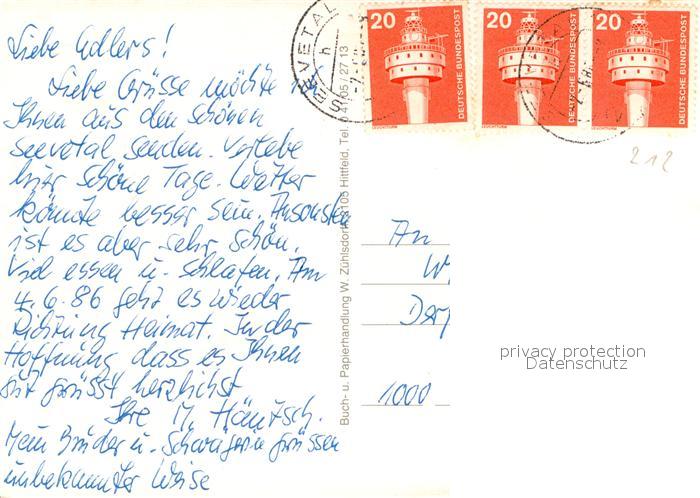 Liebe Adlers!
Liebe Grüsse möchte ich
Ihnen aus dem schönen
Seevetal senden. Verlebe
hier schöne Tage. Wetter
könnte besser sein. Ansonsten
ist es aber sehr schön.
Viel essen u. schlafen. Am
4.6.86 geht es wieder
Richtung Heimat. In der
Hoffnung dass es Ihnen
gut grüsst herzlichst
Ihre M. Häntzsch.
Mein Bruder u. Schwägerin grüssen
unbekannter Weise
Buch- u. Papierhandlung W. Zühlsdorf, 2105 Hittfeld, Tel. 0 41 05 / 27 13
SEEVETAL
h
20
DEUTSCHE BUNDESPOST
LEUCHTTURM
20
DEUTSCHE BUNDESPOST
LEUCHTTURM
20
DEUTSCHE BUNDESPOST
LEUCHTTURM
212
An
1000
privacy protection
Datenschutz